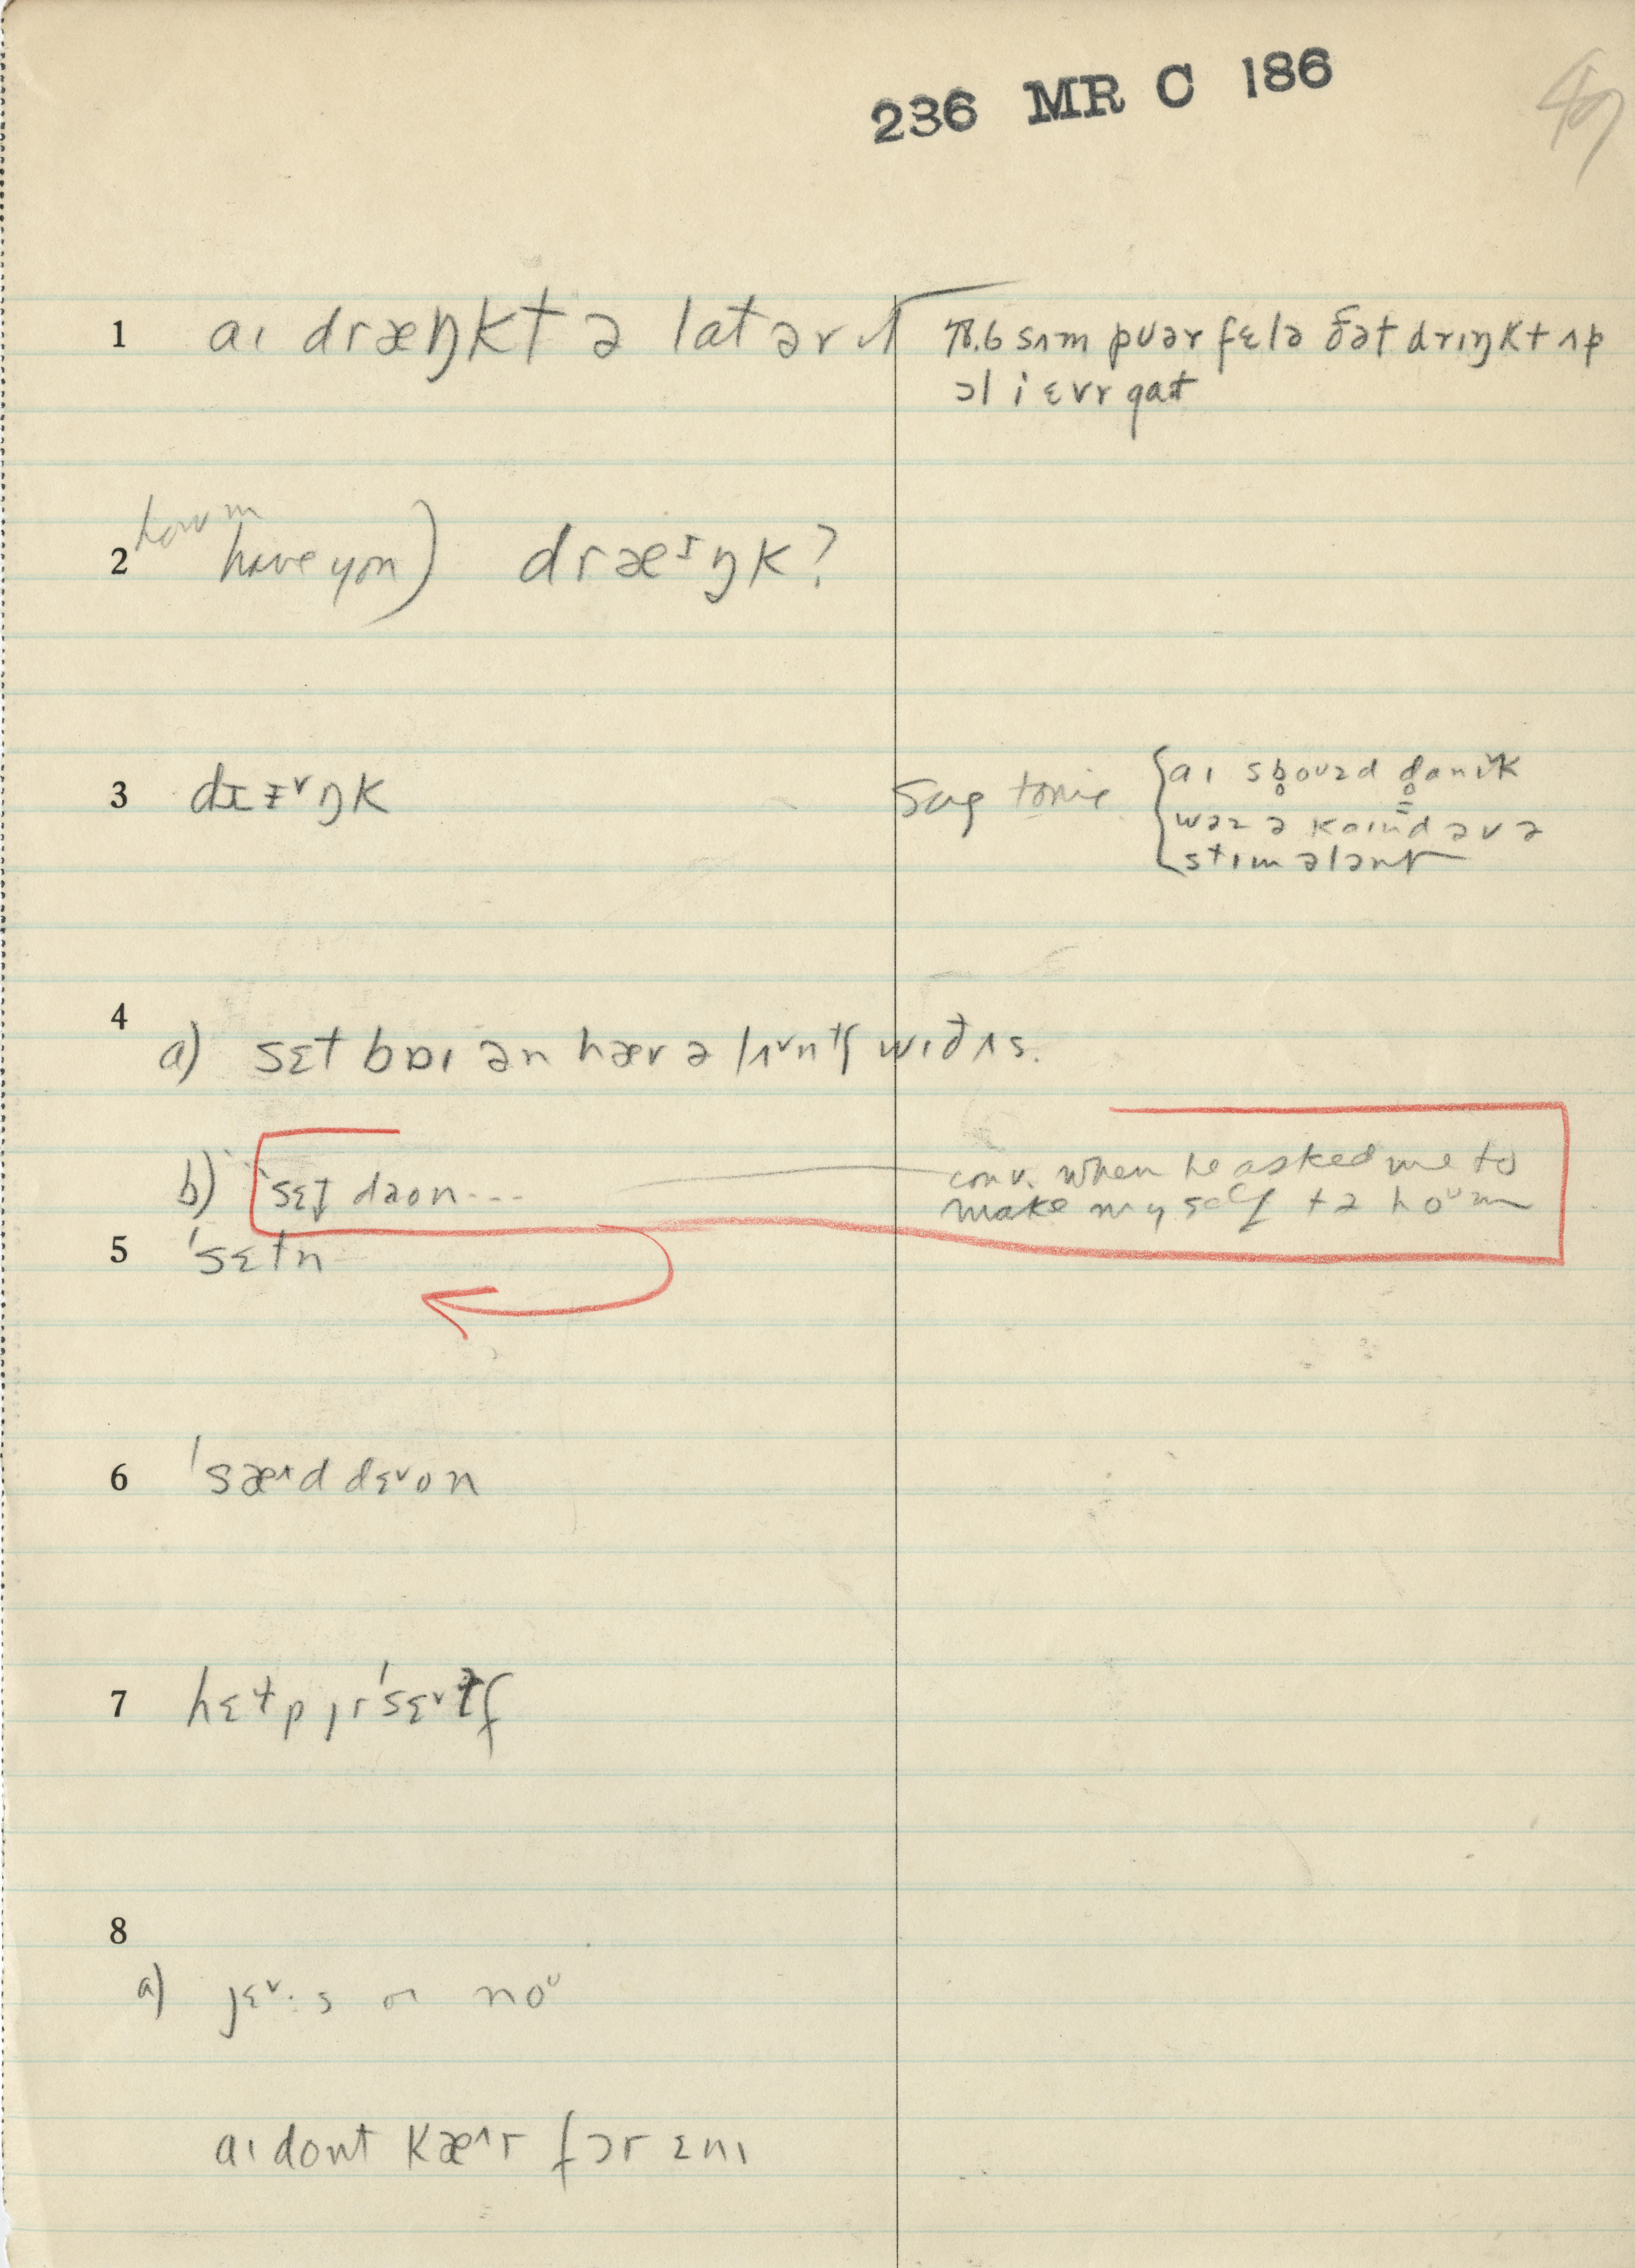 236 MR C 186
49
1 aɪ dræŋkt ə lat ər ɪt
78.6 sʌm puər fɛlə ðət drɪŋkt ʌp
ɔl i ɛvr gat
2 how m
have you) dræᶦŋk?
3 drɪ˅ŋk
Sag tonic { aɪ
wəz ə kaɪnd əv ə
stɪmələnt
4
a) sɛt baɪ ən hæv ə lʌ˅ntʃ wɪð ʌs.
b) 'sɛt daon...
conv. when he asked me to
make myself tə hoᵘm
5 'sɛtn
6 'sæ^d dɛ˅on
7 hɛtp jr'sɛ˅tf
8
a) jɛ˅·s or noᵘ
aɪ dont kæ^r fɔr ɛnɪ